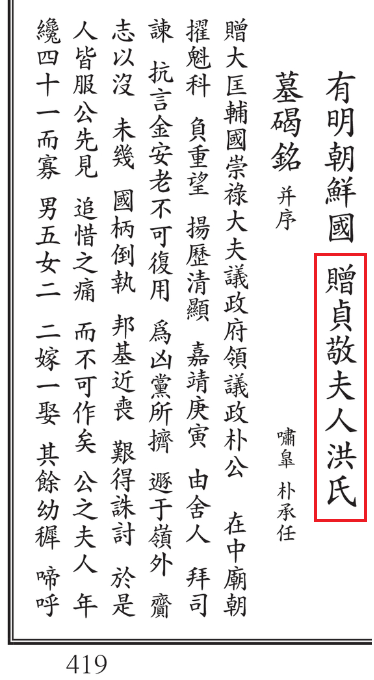 有明朝鮮國 贈貞敬夫人洪氏
墓碣銘 并序 嘯皐 朴承任
贈大匡輔國崇祿大夫議政府領議政朴公 在中廟朝
擢魁科 負重望 揚歷清顯 嘉靖庚寅 由舍人 拜司
諫 抗言金安老不可復用 爲凶黨所擠 遯于嶺外 齎
志以沒 未幾 國柄倒執 邦基近喪 艱得誅討 於是
人皆服公先見 追惜之痛 而不可作矣 公之夫人 年
纔四十一而寡 男五女二 二嫁一娶 其餘幼穉 啼呼
419